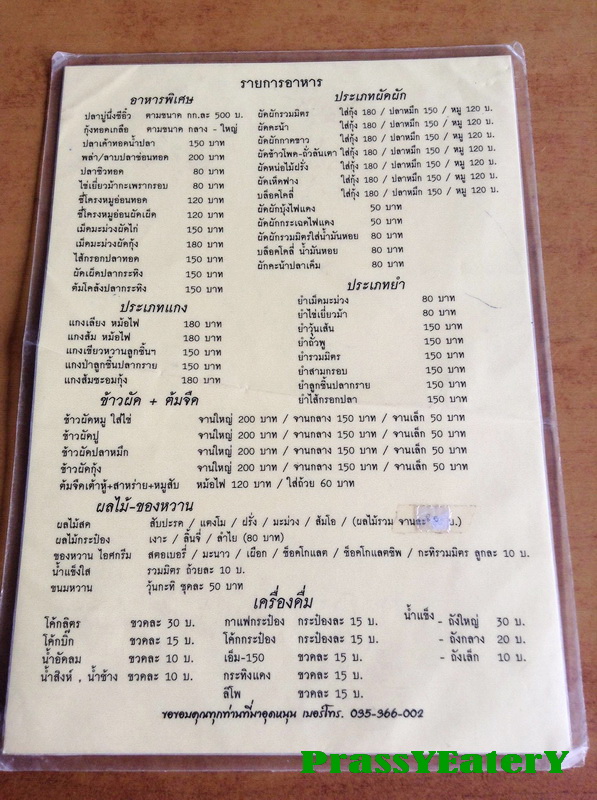 รายการอาหาร
อาหารพิเศษ
ปลาบู่นึ่งซีอิ๊ว ตามขนาด กก.ละ 500 บ.
กุ้งทอดเกลือ ตามขนาด กลาง - ใหญ่
ปลาเค้าทอดน้ำปลา 150 บาท
พล่า/ลาบปลาช่อนทอด 200 บาท
ปลาซิวทอด 80 บาท
ไข่เยี่ยวม้ากะเพรากรอบ 80 บาท
ซี่โครงหมูอ่อนทอด 120 บาท
ซี่โครงหมูอ่อนผัดเผ็ด 120 บาท
เม็ดมะม่วงผัดไก่ 150 บาท
เม็ดมะม่วงผัดกุ้ง 180 บาท
ไส้กรอกปลาทอด 150 บาท
ผัดเผ็ดปลากระทิง 150 บาท
ต้มโคล้งปลากระทิง 150 บาท
ประเภทผัดผัก
ผัดผักรวมมิตร ใส่กุ้ง 180 / ปลาหมึก 150 / หมู 120 บ.
ผัดคะน้า ใส่กุ้ง 180 / ปลาหมึก 150 / หมู 120 บ.
ผัดผักกาดขาว ใส่กุ้ง 180 / ปลาหมึก 150 / หมู 120 บ.
ผัดข้าวโพด-ถั่วลันเตา ใส่กุ้ง 180 / ปลาหมึก 150 / หมู 120 บ.
ผัดหน่อไม้ฝรั่ง ใส่กุ้ง 180 / ปลาหมึก 150 / หมู 120 บ.
ผัดเห็ดฟาง ใส่กุ้ง 180 / ปลาหมึก 150 / หมู 120 บ.
บล็อคโคลี่ ใส่กุ้ง 180 / ปลาหมึก 150 / หมู 120 บ.
ผัดผักบุ้งไฟแดง 50 บาท
ผัดผักกระเฉดไฟแดง 50 บาท
ผัดผักรวมมิตรใส่น้ำมันหอย 80 บาท
บล็อคโคลี่ น้ำมันหอย 80 บาท
ผัดคะน้าปลาเค็ม 80 บาท
ประเภทแกง
แกงเลียง หม้อไฟ 180 บาท
แกงส้ม หม้อไฟ 180 บาท
แกงเขียวหวานลูกชิ้นฯ 150 บาท
แกงป่าลูกชิ้นปลากราย 150 บาท
แกงส้มชะอมกุ้ง 180 บาท
ประเภทยำ
ยำเม็ดมะม่วง 80 บาท
ยำไข่เยี่ยวม้า 80 บาท
ยำวุ้นเส้น 150 บาท
ยำถั่วพู 150 บาท
ยำรวมมิตร 150 บาท
ยำสามกรอบ 150 บาท
ยำลูกชิ้นปลากราย 150 บาท
ยำไส้กรอกปลา 150 บาท
ข้าวผัด + ต้มจืด
ข้าวผัดหมู ใส่ไข่ จานใหญ่ 200 บาท / จานกลาง 150 บาท / จานเล็ก 50 บาท
ข้าวผัดปู จานใหญ่ 200 บาท / จานกลาง 150 บาท / จานเล็ก 50 บาท
ข้าวผัดปลาหมึก จานใหญ่ 200 บาท / จานกลาง 150 บาท / จานเล็ก 50 บาท
ข้าวผัดกุ้ง จานใหญ่ 200 บาท / จานกลาง 150 บาท / จานเล็ก 50 บาท
ต้มจืดเต้าหู้+สาหร่าย+หมูสับ หม้อไฟ 120 บาท / ใส่ถ้วย 60 บาท
ผลไม้-ของหวาน
ผลไม้สด สับปะรด / แตงโม / ฝรั่ง / มะม่วง / ส้มโอ / (ผลไม้รวม จานละ บ.)
ผลไม้กระป๋อง เงาะ / ลิ้นจี่ / ลำไย (80 บาท)
ของหวาน ไอศกรีม สตอเบอรี่ / มะนาว / เผือก / ช็อคโกแลต / ช็อคโกแลตชิพ / กะทิรวมมิตร ลูกละ 10 บ.
น้ำแข็งใส รวมมิตร ถ้วยละ 10 บ.
ขนมหวาน วุ้นกะทิ ชุดละ 50 บาท
เครื่องดื่ม
โค้กลิตร ขวดละ 30 บ.
โค้กบิ๊ก ขวดละ 15 บ.
น้ำอัดลม ขวดละ 10 บ.
น้ำสิงห์ , น้ำช้าง ขวดละ 10 บ.
กาแฟกระป๋อง กระป๋องละ 15 บ.
โค้กกระป๋อง กระป๋องละ 15 บ.
เอ็ม-150 ขวดละ 15 บ.
กระทิงแดง ขวดละ 15 บ.
ลิโพ ขวดละ 15 บ.
น้ำแข็ง - ถังใหญ่ 30 บ.
- ถังกลาง 20 บ.
- ถังเล็ก 10 บ.
ขอขอบคุณทุกท่านที่มาอุดหนุน เบอร์โทร. 035-366-002
PrassYEaterY